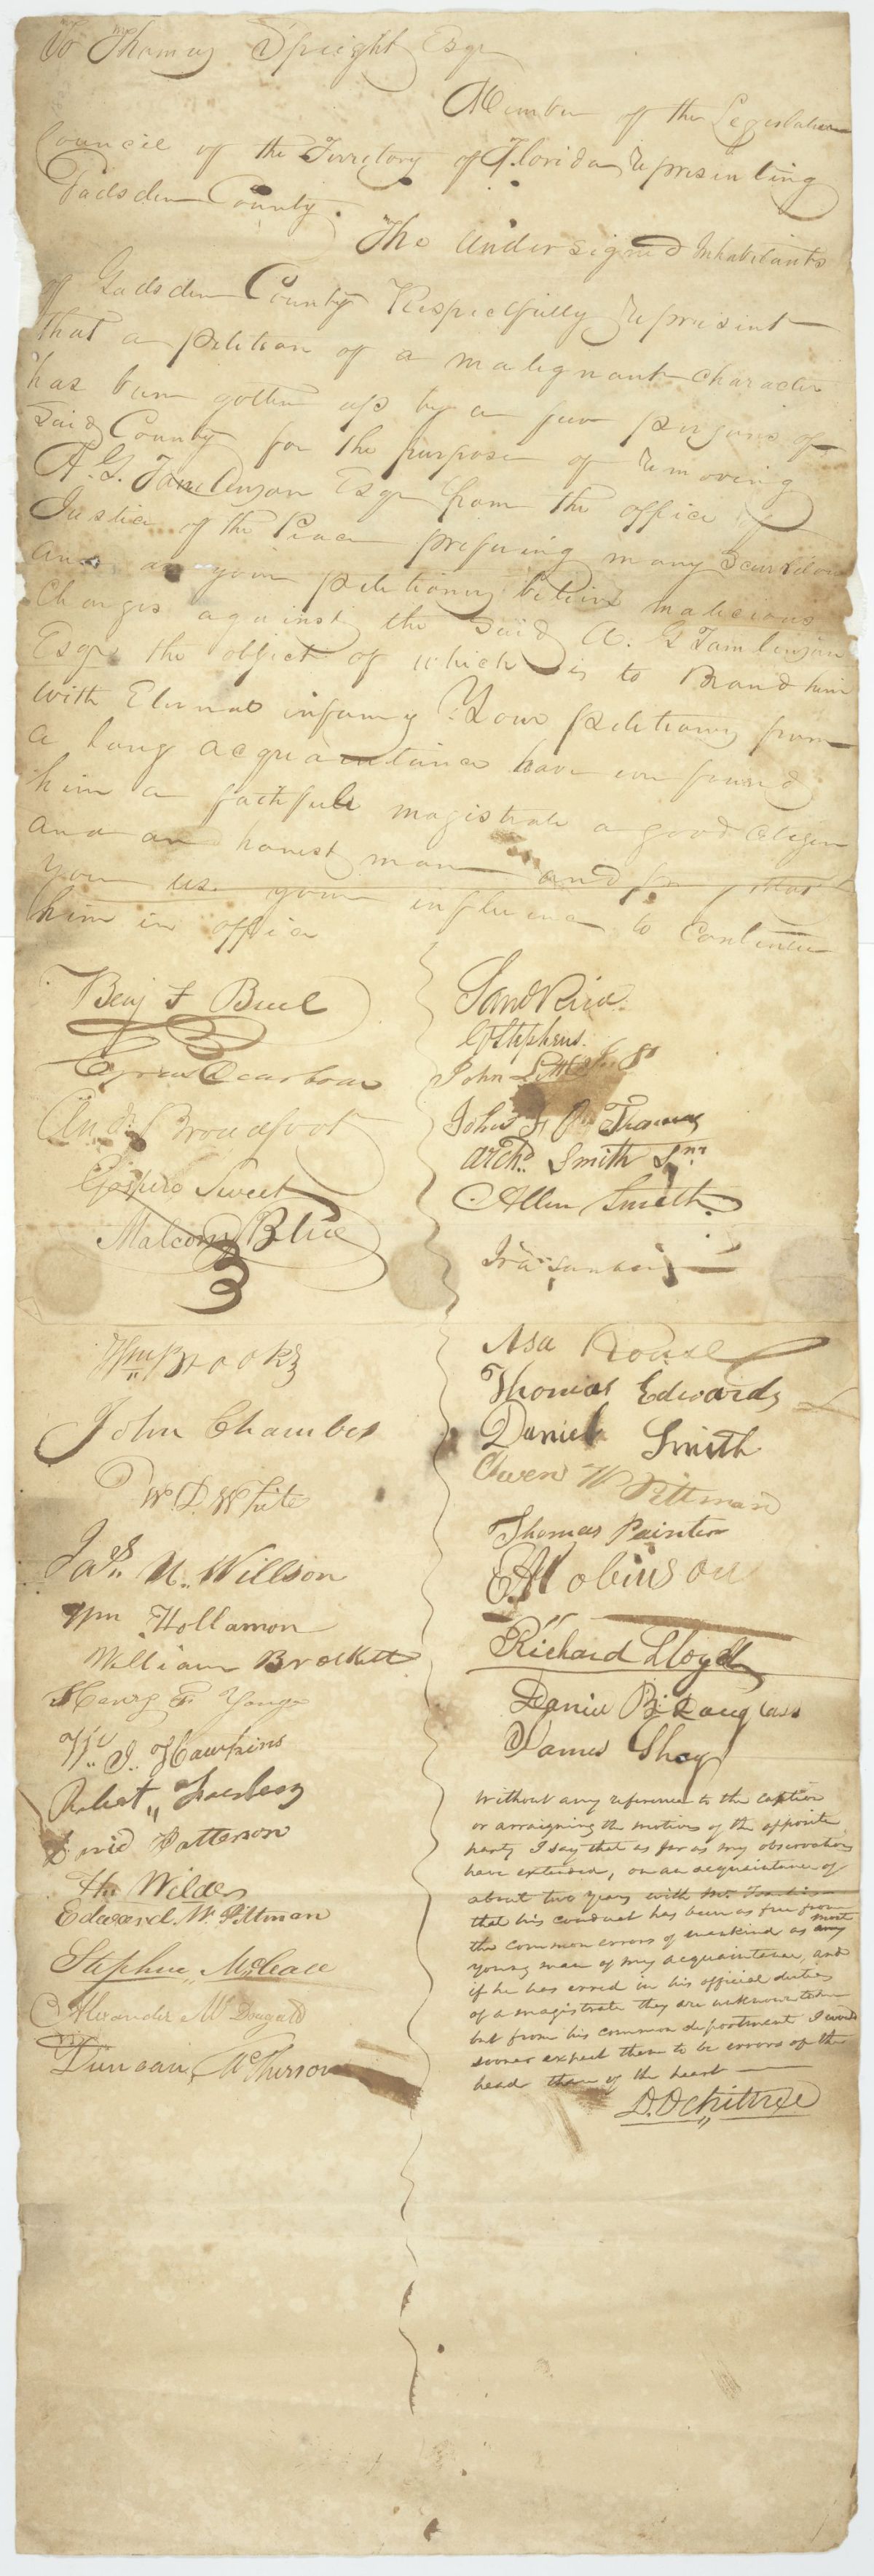 To Thomas Speight Esqr
Member of the Legislative
Council of the Territory of Florida representing
Gadsden County.
The undersigned Inhabitants
of Gadsden County Respectfully represent
that a petition of a malignant character
has been gotten up by a few persons of
said County for the purpose of removing
A. G. Tomlinson Esqr from the office of
Justice of the Peace prefering many scurrilous
and as your petitioners believe malicious
Charges against the said A. G Tomlinson
Esqr the object of which is to Brand him
with Eternal infamy Your petitioners from
a long acquaintance have ever found
him a faithfull magistrate a good citizen
and an honest man and pray that
you use your influence to continue
him in office
Benj F Buel
Cyrus Dearborn
And. Broadfoot
Gospero Sweet
Malcom Blue
Wm Brooks
John Chamber
W. D. White
Jas. U. Willson
Wm Hollamon
William Brockett
Henry F Yonge
W. J. Hawkins
Robert
David Patterson
Th. Wilder
Edward. W. Pittman
Stephen
Alexander McDougald
Duncan McPherson
Sand
Stephens.
John
John F. Thomas
Archd. Smith Snr
Allen Smith
Ira
Asa Rouse
Thomas Edwards
Daniel Smith
Owen W Pittman
Thomas Painter
Robinson
Richard Lloyd
Daniel B. Douglass
James Shay
Without any reference to the caption
or arraigning the motives of the opposite
party I say that as far as my observations
have extended, on an acquaintance of
about two years with Mr.
that his conduct has been as free from
the common errors of mankind as any most
young men of my acquaintance, and
if he has erred in his official duties
of a magistrate they are unknown to me
but from his common deportment I would
sooner expect them to be errors of the
head than of the heart
D. McKithen